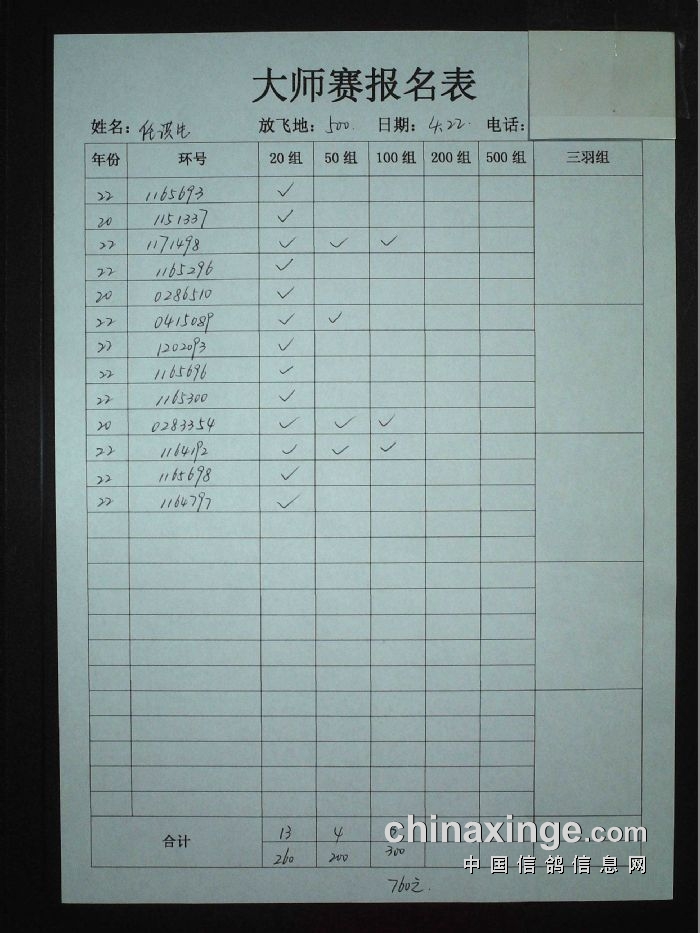 大师赛报名表
姓名: 放飞地: 500. 日期: 4.22. 电话:
年份 环号 20组 50组 100组 200组 500组 三羽组
22 1165693 ✓
20 1151337 ✓
22 1171498 ✓ ✓ ✓
22 1165296 ✓
20 0286510 ✓
22 0415089 ✓ ✓
22 1202093 ✓
22 1165696 ✓
22 1165300 ✓
20 0283354 ✓ ✓ ✓
22 1164192 ✓ ✓ ✓
22 1165698 ✓
22 1164797 ✓
合计 13 4
260 200 300
760元.
chinaxinge.com
中国信鸽信息网